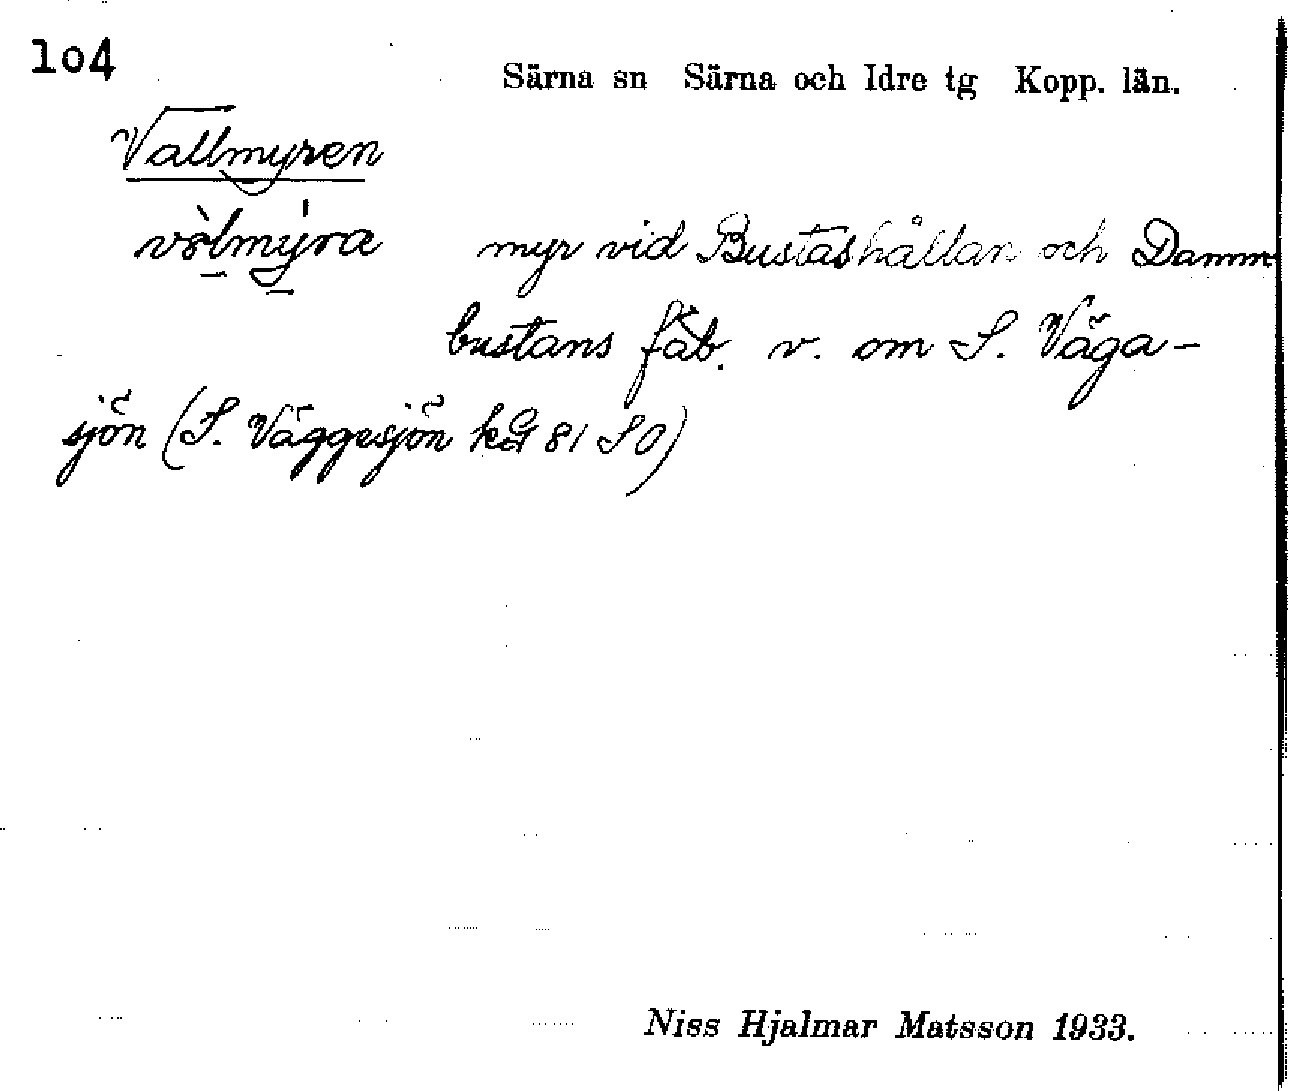 104
Särna sn Särna och Idre tg Kopp. län.
Vallmyren
vàlmýra myr vid Bustashållan och Damm
bustans fäb. v. om S. Väga-
sjön (S. Väggesjön kbl 81 SO)
Niss Hjalmar Matsson 1933.